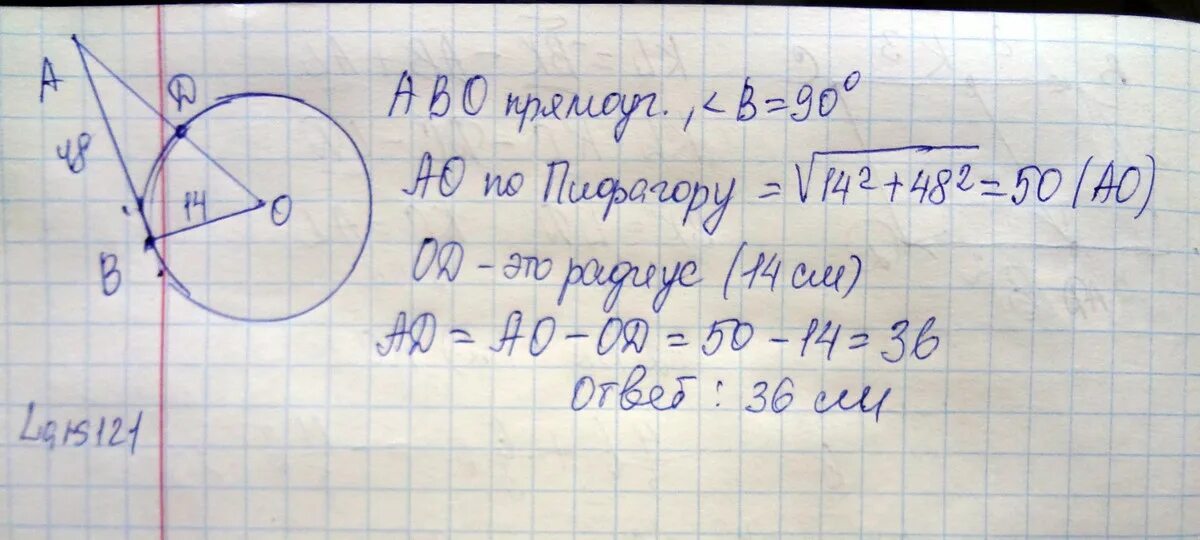 A
D
48
14
O
B
ABO прямоуг., <B=90⁰
AO по Пифагору = √14²+48² = 50 (AO)
OD - это радиус (14 см)
AD = AO - OD = 50 - 14 = 36
Ответ: 36 см
Lars121